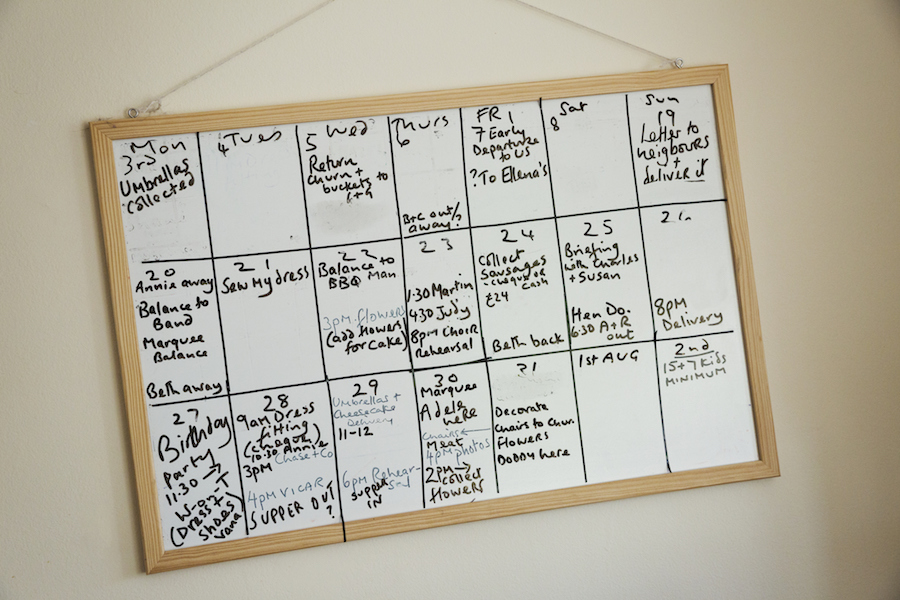 Mon
3rd
Umbrellas
Collected
4 Tues
5 Wed
Return
churn +
buckets to
Thurs
6
B+C out/
away?
FRI
7 Early
Departure
to US
? To Ellena's
Sat
8
Sun
19
Letter to
neigbours
+
deliver it
20
Annie away
Balance to
Band
Marquee
Balance
Beth away
21
Sew My dress
22
Balance to
BBQ Man
3pm flowers
(add flowers
for cake)
23
1:30 Martin
430 Judy
8pm Choir
Rehearsal
24
Collect
Sausages
- cheque or
cash
£24
Beth back
25
Briefing
with Charles
+ Susan
Hen Do.
6:30 A+R
out
26
8PM
Delivery
27
Birthday
party
11:30 →
W-or-T
(Dress +
shoes
28
9am Dress
fitting
(cheque)
10:30 Annie
3PM Chase + Co
4PM VICAR
SUPPER OUT
?
29
Umbrellas +
Cheesecake
Delivery
11-12
6pm Rehear-
sal
Supper
IN
30
Marquee
Adele
here
Chairs ←
Meat
4pm photos
2pm →
collect
flowers
31
Decorate
Chairs to Chur.
Flowers
DODDY here
1st AUG
2nd
15+7 kids
MINIMUM